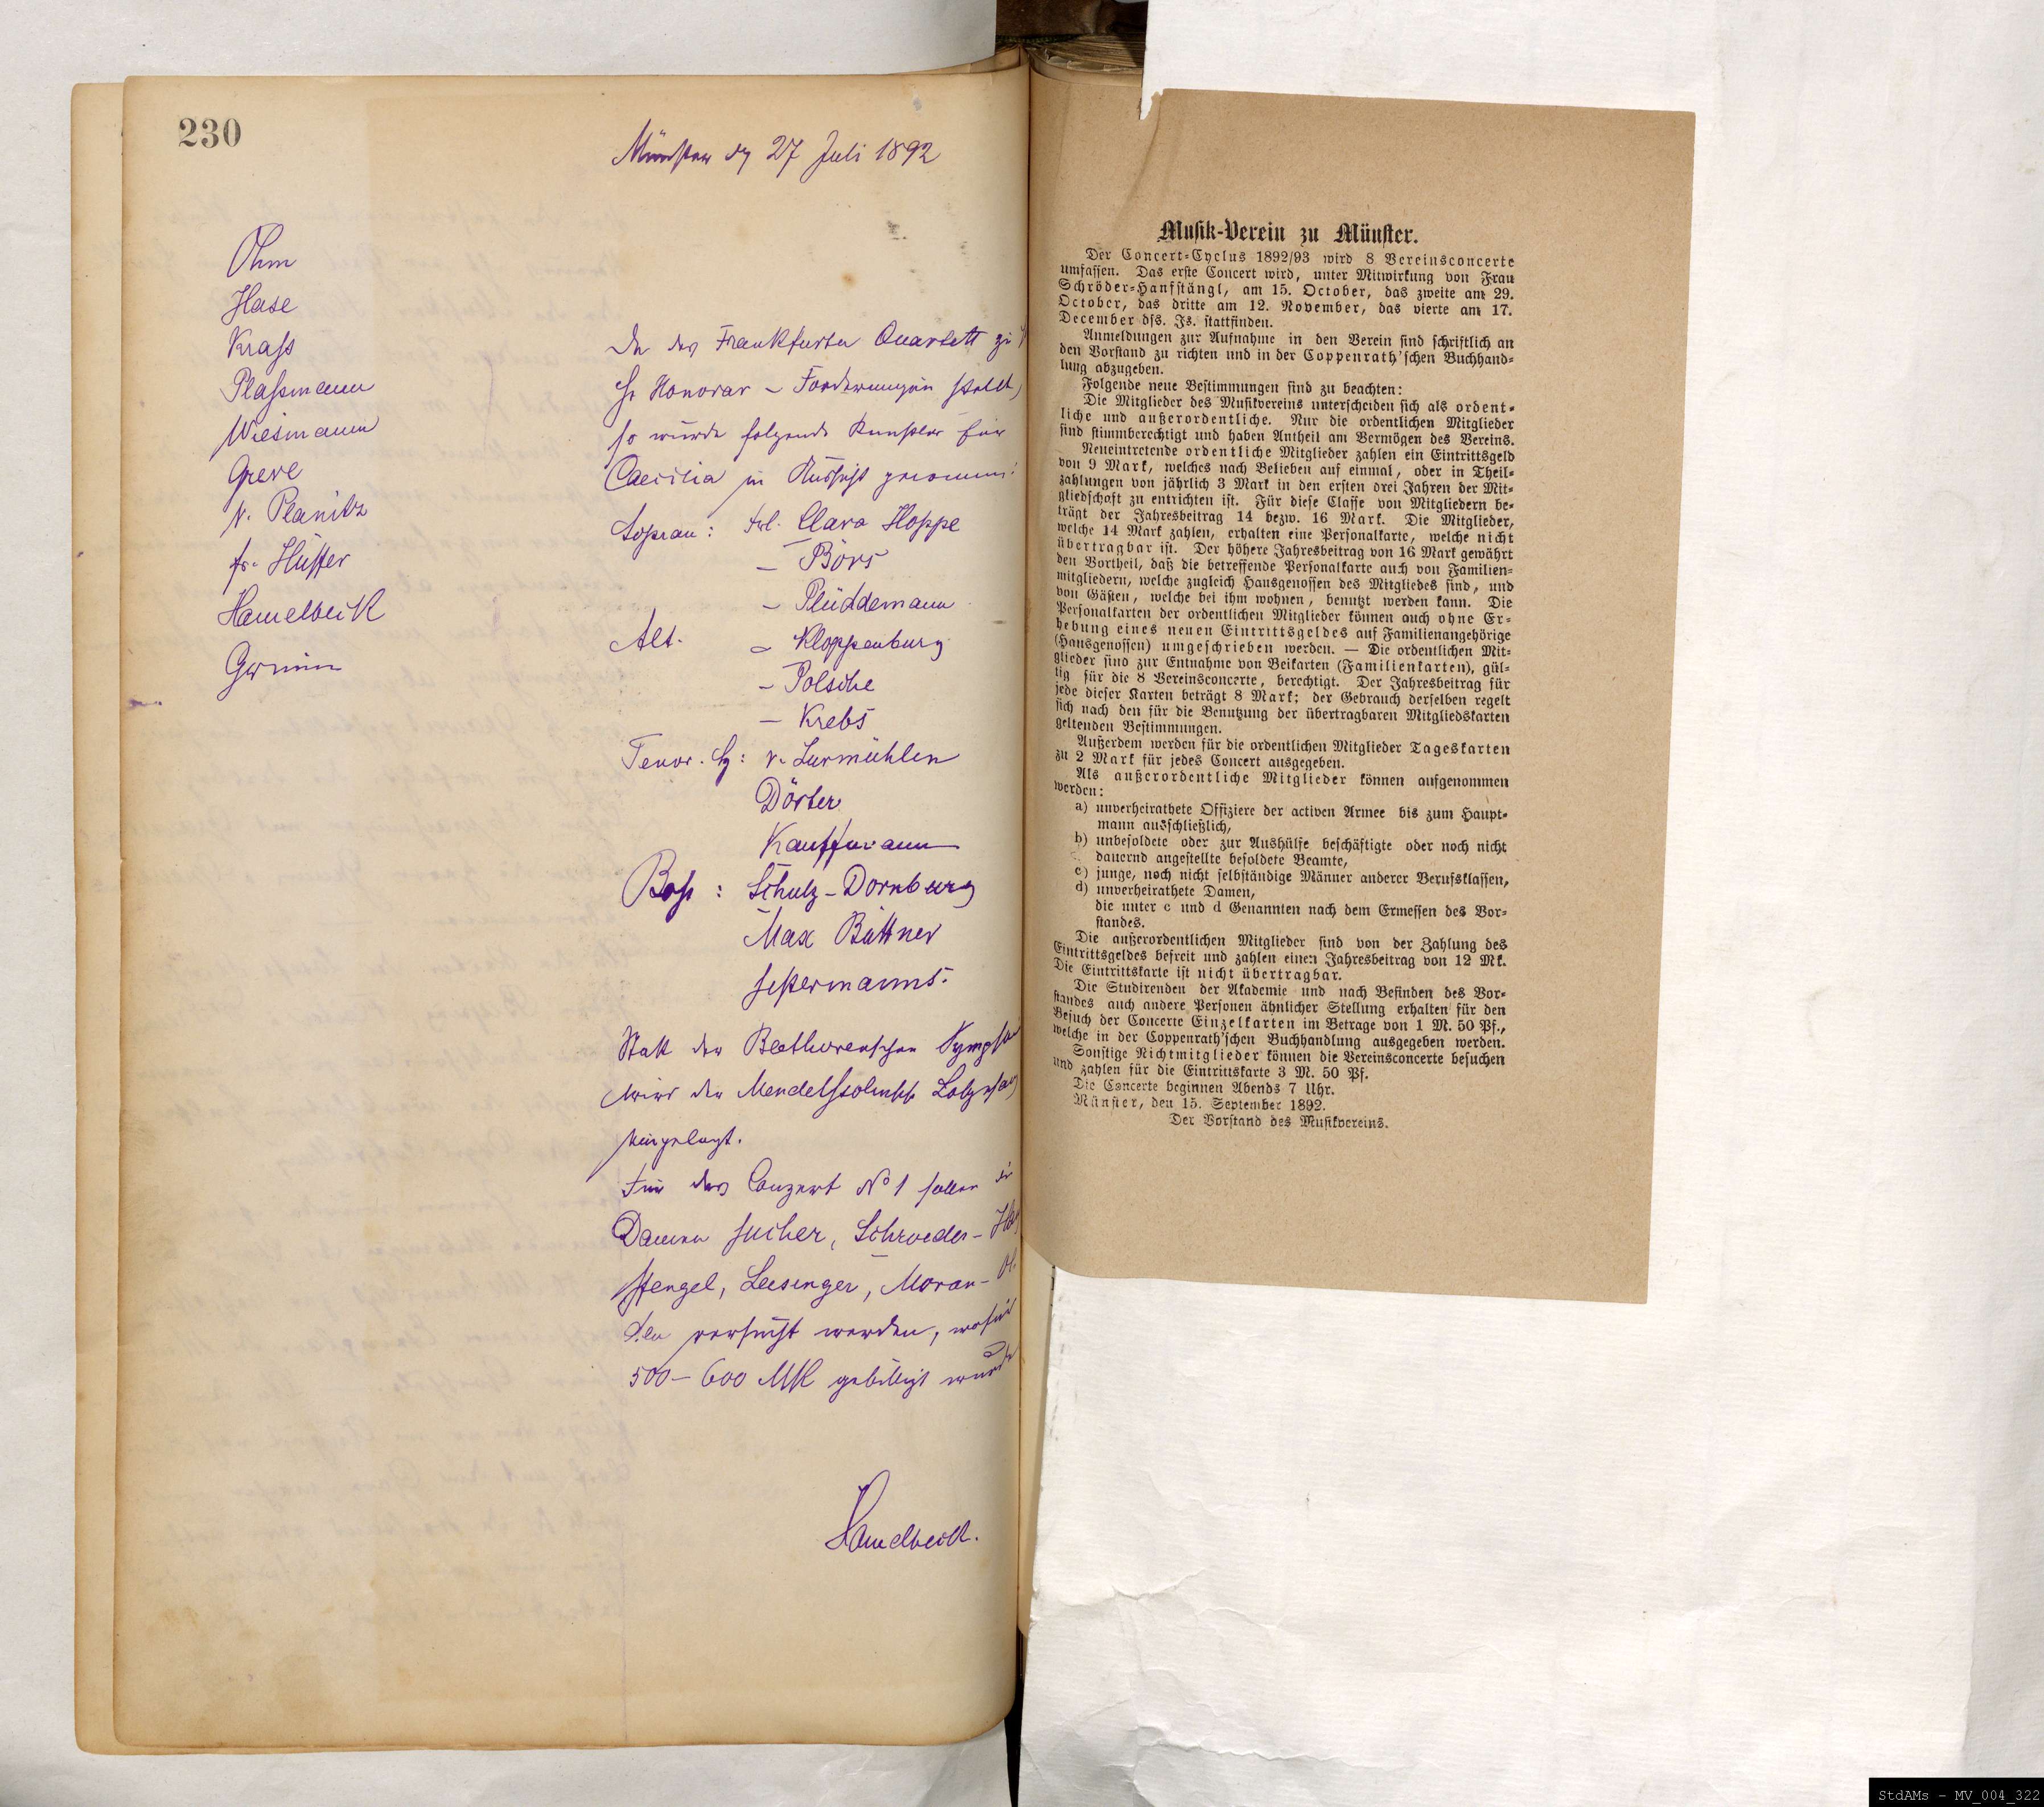 230
Münster dn 27 Juli 1892
Ohm
Hase
Krass
Plassmann
Wiesmann
Greve
v. Planitz
fr. Hüffer
Hamelbeck
Grimm
Da das Frankfurter Quartett zu
he Honorar-Forderungen stellt,
so wurde folgende Künstler für
Caecilia in Aussicht genommen:
Sopran: Frl. Clara Hoppe
– Börs
– Plüddemann
Alt. – Kloppenburg
– Polsche
– Krebs
Tenor. H: v. Zurmühlen
Dörter
Kauffmann
Bass: Schulz-Dornburg
Max Büttner
Sistermanns.
Statt der Beethovenschen Symphon
wird der Mendelssohnsche Lobgesang
eingelegt.
Für das Conzert No 1 sollen die
Damen Sucher, Schroeder-Han
stengel, Leisinger, Moran-Ol
den versucht werden, wofür
500–600 Mk gebilligt wurde
Hamelbeck.
Musik-Verein zu Münster.
Der Concert-Cyclus 1892/93 wird 8 Vereinsconcerte
umfassen. Das erste Concert wird, unter Mitwirkung von Frau
Schröder-Hanfstängl, am 15. October, das zweite am 29.
October, das dritte am 12. November, das vierte am 17.
December dss. Js. stattfinden.
Anmeldungen zur Aufnahme in den Verein sind schriftlich an
den Vorstand zu richten und in der Coppenrath'schen Buchhand-
lung abzugeben.
Folgende neue Bestimmungen sind zu beachten:
Die Mitglieder des Musikvereins unterscheiden sich als ordent-
liche und außerordentliche. Nur die ordentlichen Mitglieder
sind stimmberechtigt und haben Antheil am Vermögen des Vereins.
Neueintretende ordentliche Mitglieder zahlen ein Eintrittsgeld
von 9 Mark, welches nach Belieben auf einmal, oder in Theil-
zahlungen von jährlich 3 Mark in den ersten drei Jahren der Mit-
gliedschaft zu entrichten ist. Für diese Classe von Mitgliedern be-
trägt der Jahresbeitrag 14 bezw. 16 Mark. Die Mitglieder,
welche 14 Mark zahlen, erhalten eine Personalkarte, welche nicht
übertragbar ist. Der höhere Jahresbeitrag von 16 Mark gewährt
den Vortheil, daß die betreffende Personalkarte auch von Familien-
mitgliedern, welche zugleich Hausgenossen des Mitgliedes sind, und
von Gästen, welche bei ihm wohnen, benutzt werden kann. Die
Personalkarten der ordentlichen Mitglieder können auch ohne Er-
hebung eines neuen Eintrittsgeldes auf Familienangehörige
(Hausgenossen) umgeschrieben werden. — Die ordentlichen Mit-
glieder sind zur Entnahme von Beikarten (Familienkarten), gül-
tig für die 8 Vereinsconcerte, berechtigt. Der Jahresbeitrag für
jede dieser Karten beträgt 8 Mark; der Gebrauch derselben regelt
sich nach den für die Benutzung der übertragbaren Mitgliedskarten
geltenden Bestimmungen.
Außerdem werden für die ordentlichen Mitglieder Tageskarten
zu 2 Mark für jedes Concert ausgegeben.
Als außerordentliche Mitglieder können aufgenommen
werden:
a) unverheirathete Offiziere der activen Armee bis zum Haupt-
mann ausschließlich,
b) unbesoldete oder zur Aushülfe beschäftigte oder noch nicht
dauernd angestellte besoldete Beamte,
c) junge, noch nicht selbständige Männer anderer Berufsklassen,
d) unverheirathete Damen,
die unter c und d Genannten nach dem Ermessen des Vor-
standes.
Die außerordentlichen Mitglieder sind von der Zahlung des
Eintrittsgeldes befreit und zahlen einen Jahresbeitrag von 12 Mk.
Die Eintrittskarte ist nicht übertragbar.
Die Studirenden der Akademie und nach Befinden des Vor-
standes auch andere Personen ähnlicher Stellung erhalten für den
Besuch der Concerte Einzelkarten im Betrage von 1 M. 50 Pf.,
welche in der Coppenrath'schen Buchhandlung ausgegeben werden.
Sonstige Nichtmitglieder können die Vereinsconcerte besuchen
und zahlen für die Eintrittskarte 3 M. 50 Pf.
Die Concerte beginnen Abends 7 Uhr.
Münster, den 15. September 1892.
Der Vorstand des Musikvereins.
StdAMs - MV_004_322